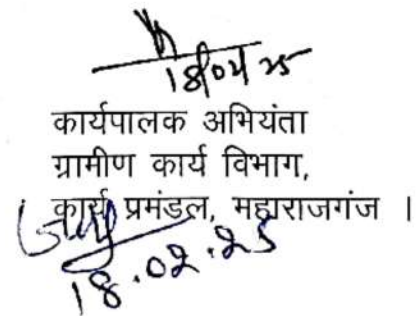 18/02/25
कार्यपालक अभियंता
ग्रामीण कार्य विभाग,
कार्य प्रमंडल, महाराजगंज ।
18.02.25